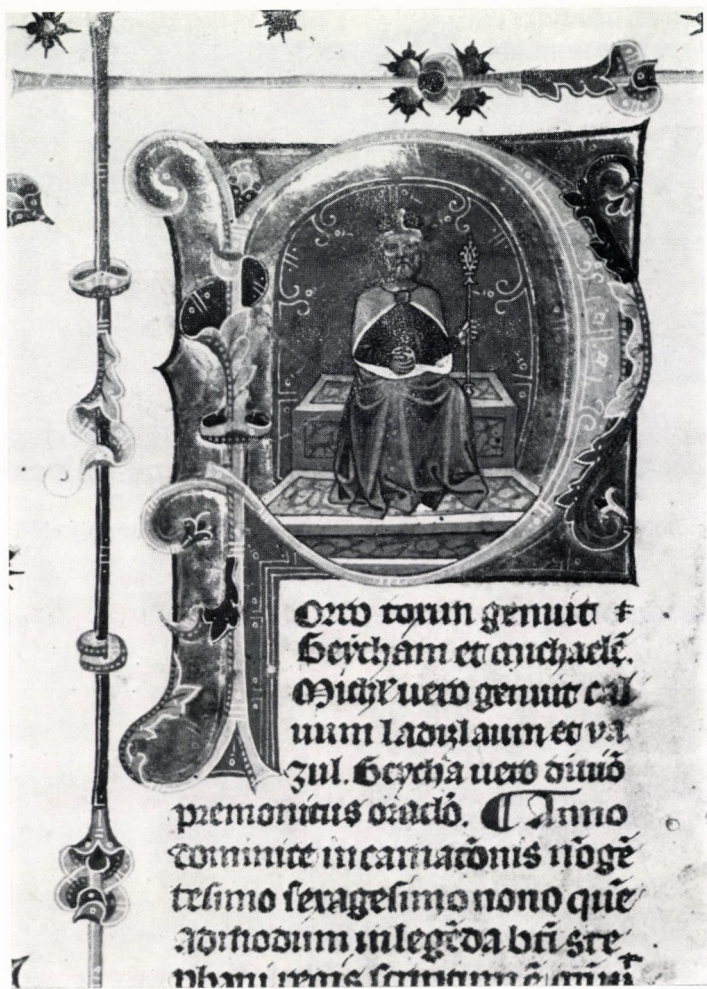 Porro toxun genuit ⁊
Geycham et michaelē.
Mich̄l uero genuit cal
uum ladizlaum et va
zul. Geycha uero diuīō
premonitus orac̄lō. ¶ Anno
dominice incarnatōnis nōgē
tesimo sexagesimo nono quē
admodum in legēda bt̄i ste
phani regis scriptum ē